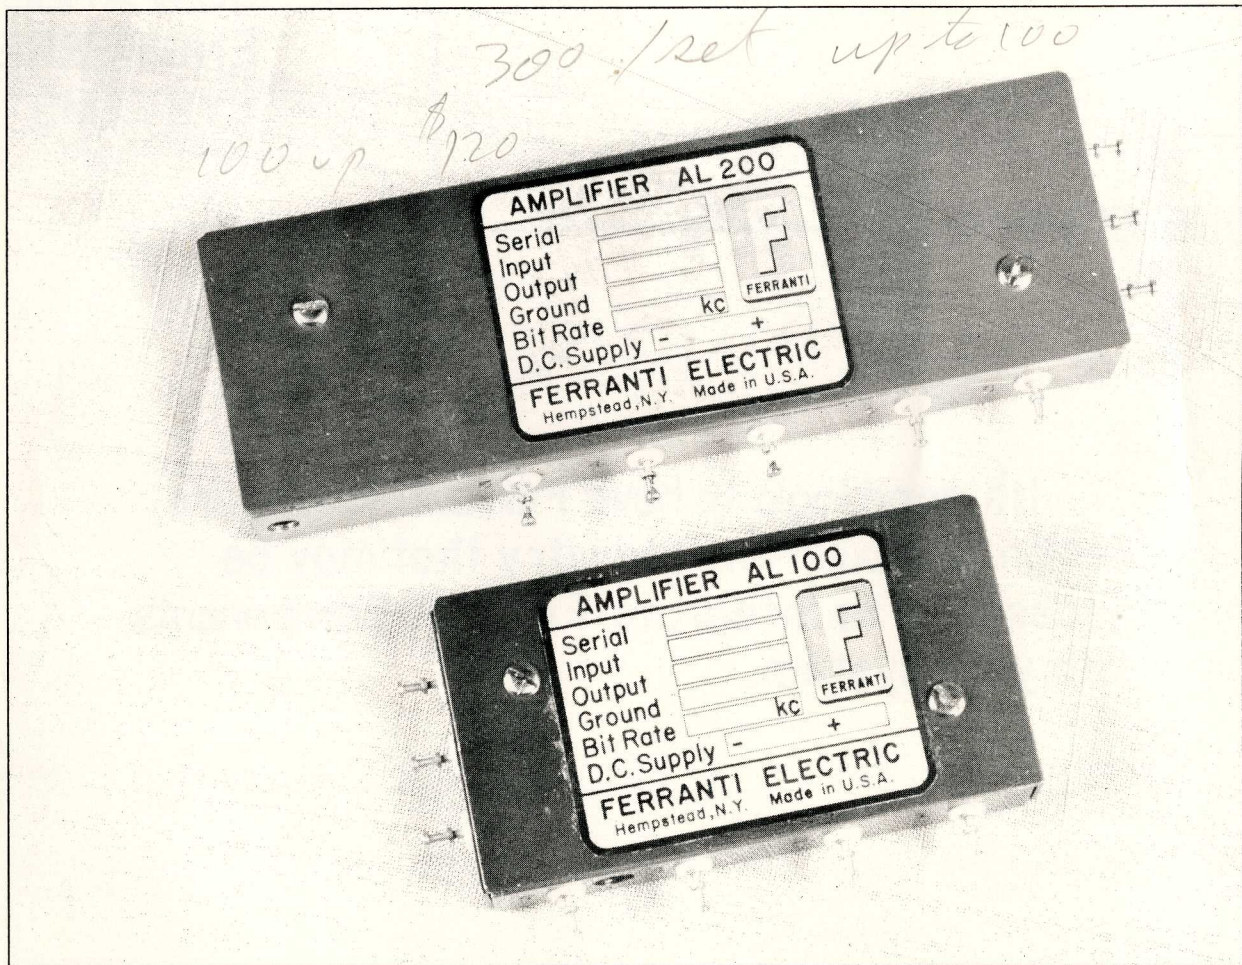 300./set up to 100
100 up $120
AMPLIFIER AL 200
Serial
Input
Output
Ground
Bit Rate kc
D.C. Supply - +
F
FERRANTI
FERRANTI ELECTRIC
Hempstead, N.Y. Made in U.S.A.
AMPLIFIER AL 100
Serial
Input
Output
Ground
Bit Rate kc
D.C. Supply - +
F
FERRANTI
FERRANTI ELECTRIC
Hempstead, N.Y. Made in U.S.A.